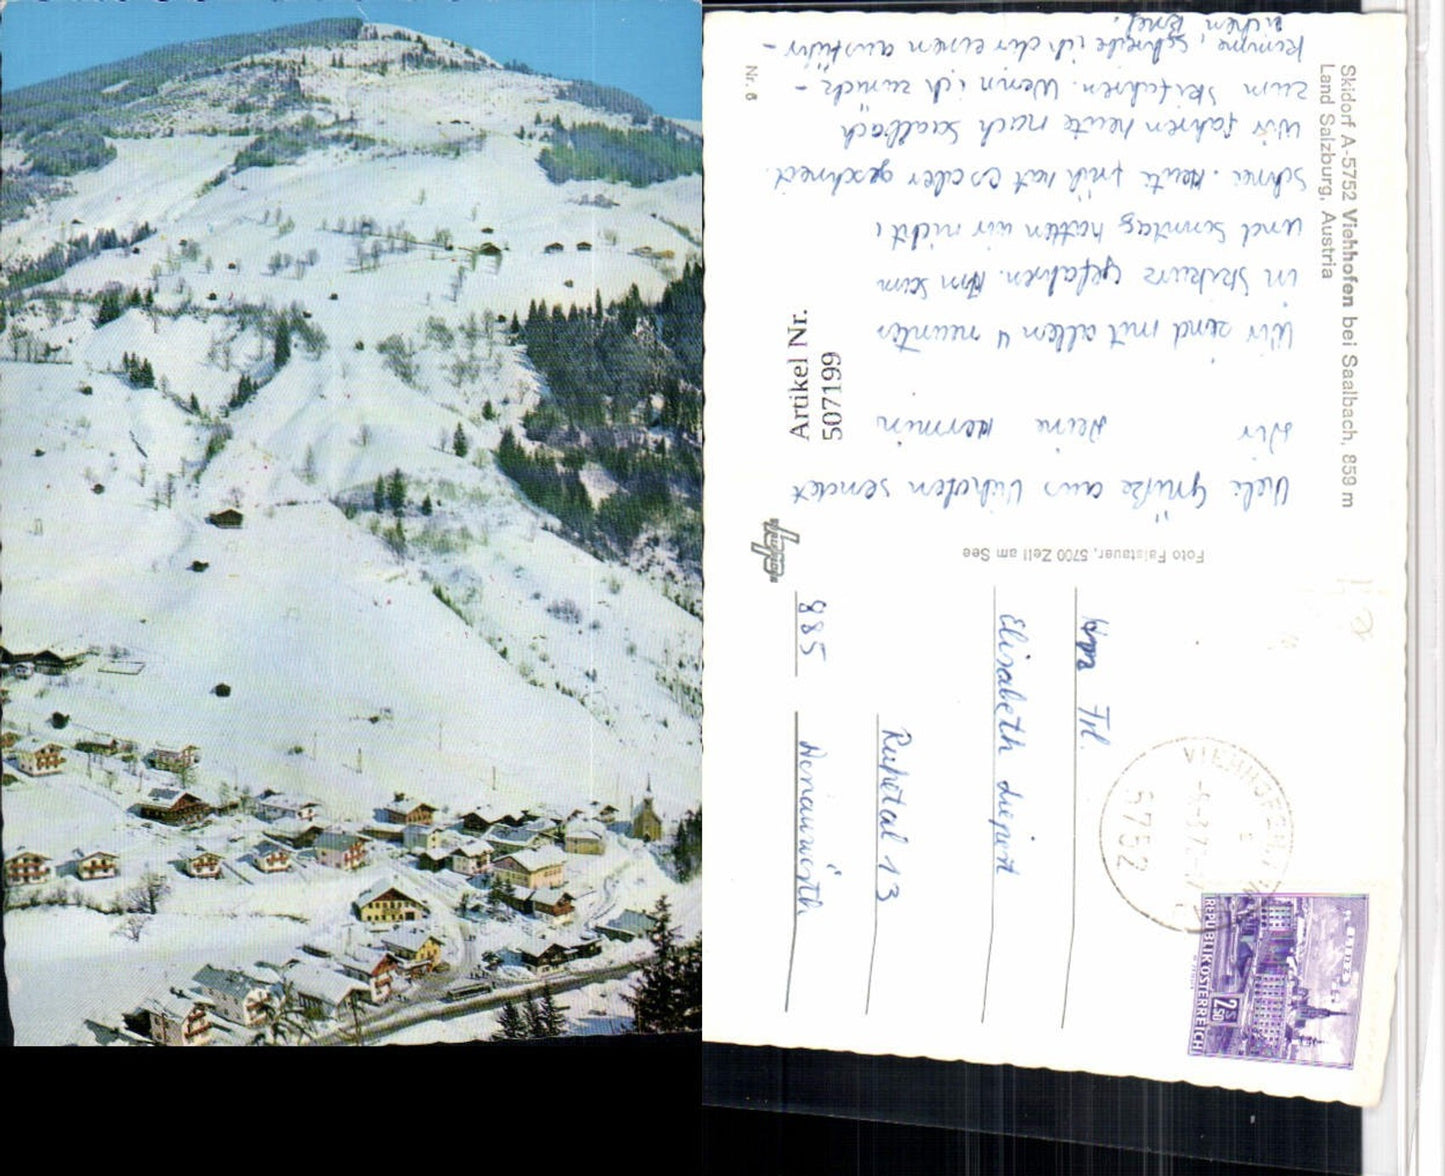 Skidorf A-5752 Viehhofen bei Saalbach, 859 m
Land Salzburg, Austria
Viele Grüße aus Viehofen sendet
Dir Deine Hermin
Wir sind mit allen 4 neuntes
in Skikurs gefahren. Am Sam
und Sonntag hatten wir nicht
Schnei. Heute früh hat es aber geschneit.
Wir fahren heute nach Saalbach
zum Skifahren. Wenn ich zurück-
komme, schreibe ich dir einen ausführ-
lichen Brief.
Nr. 6
Artikel Nr.
507199
Foto Faistauer, 5700 Zell am See
Frl.
Elisabeth
Rupetal 13
885 Donauwörth
VIEHHOFEN
5752
REPUBLIK ÖSTERREICH
S 2.50
LINZ